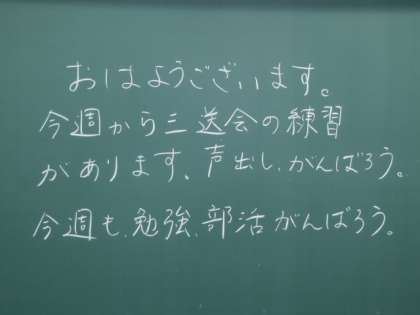 おはようございます。
今週から三送会の練習
があります、声出し、がんばろう。
今週も、勉強、部活がんばろう。